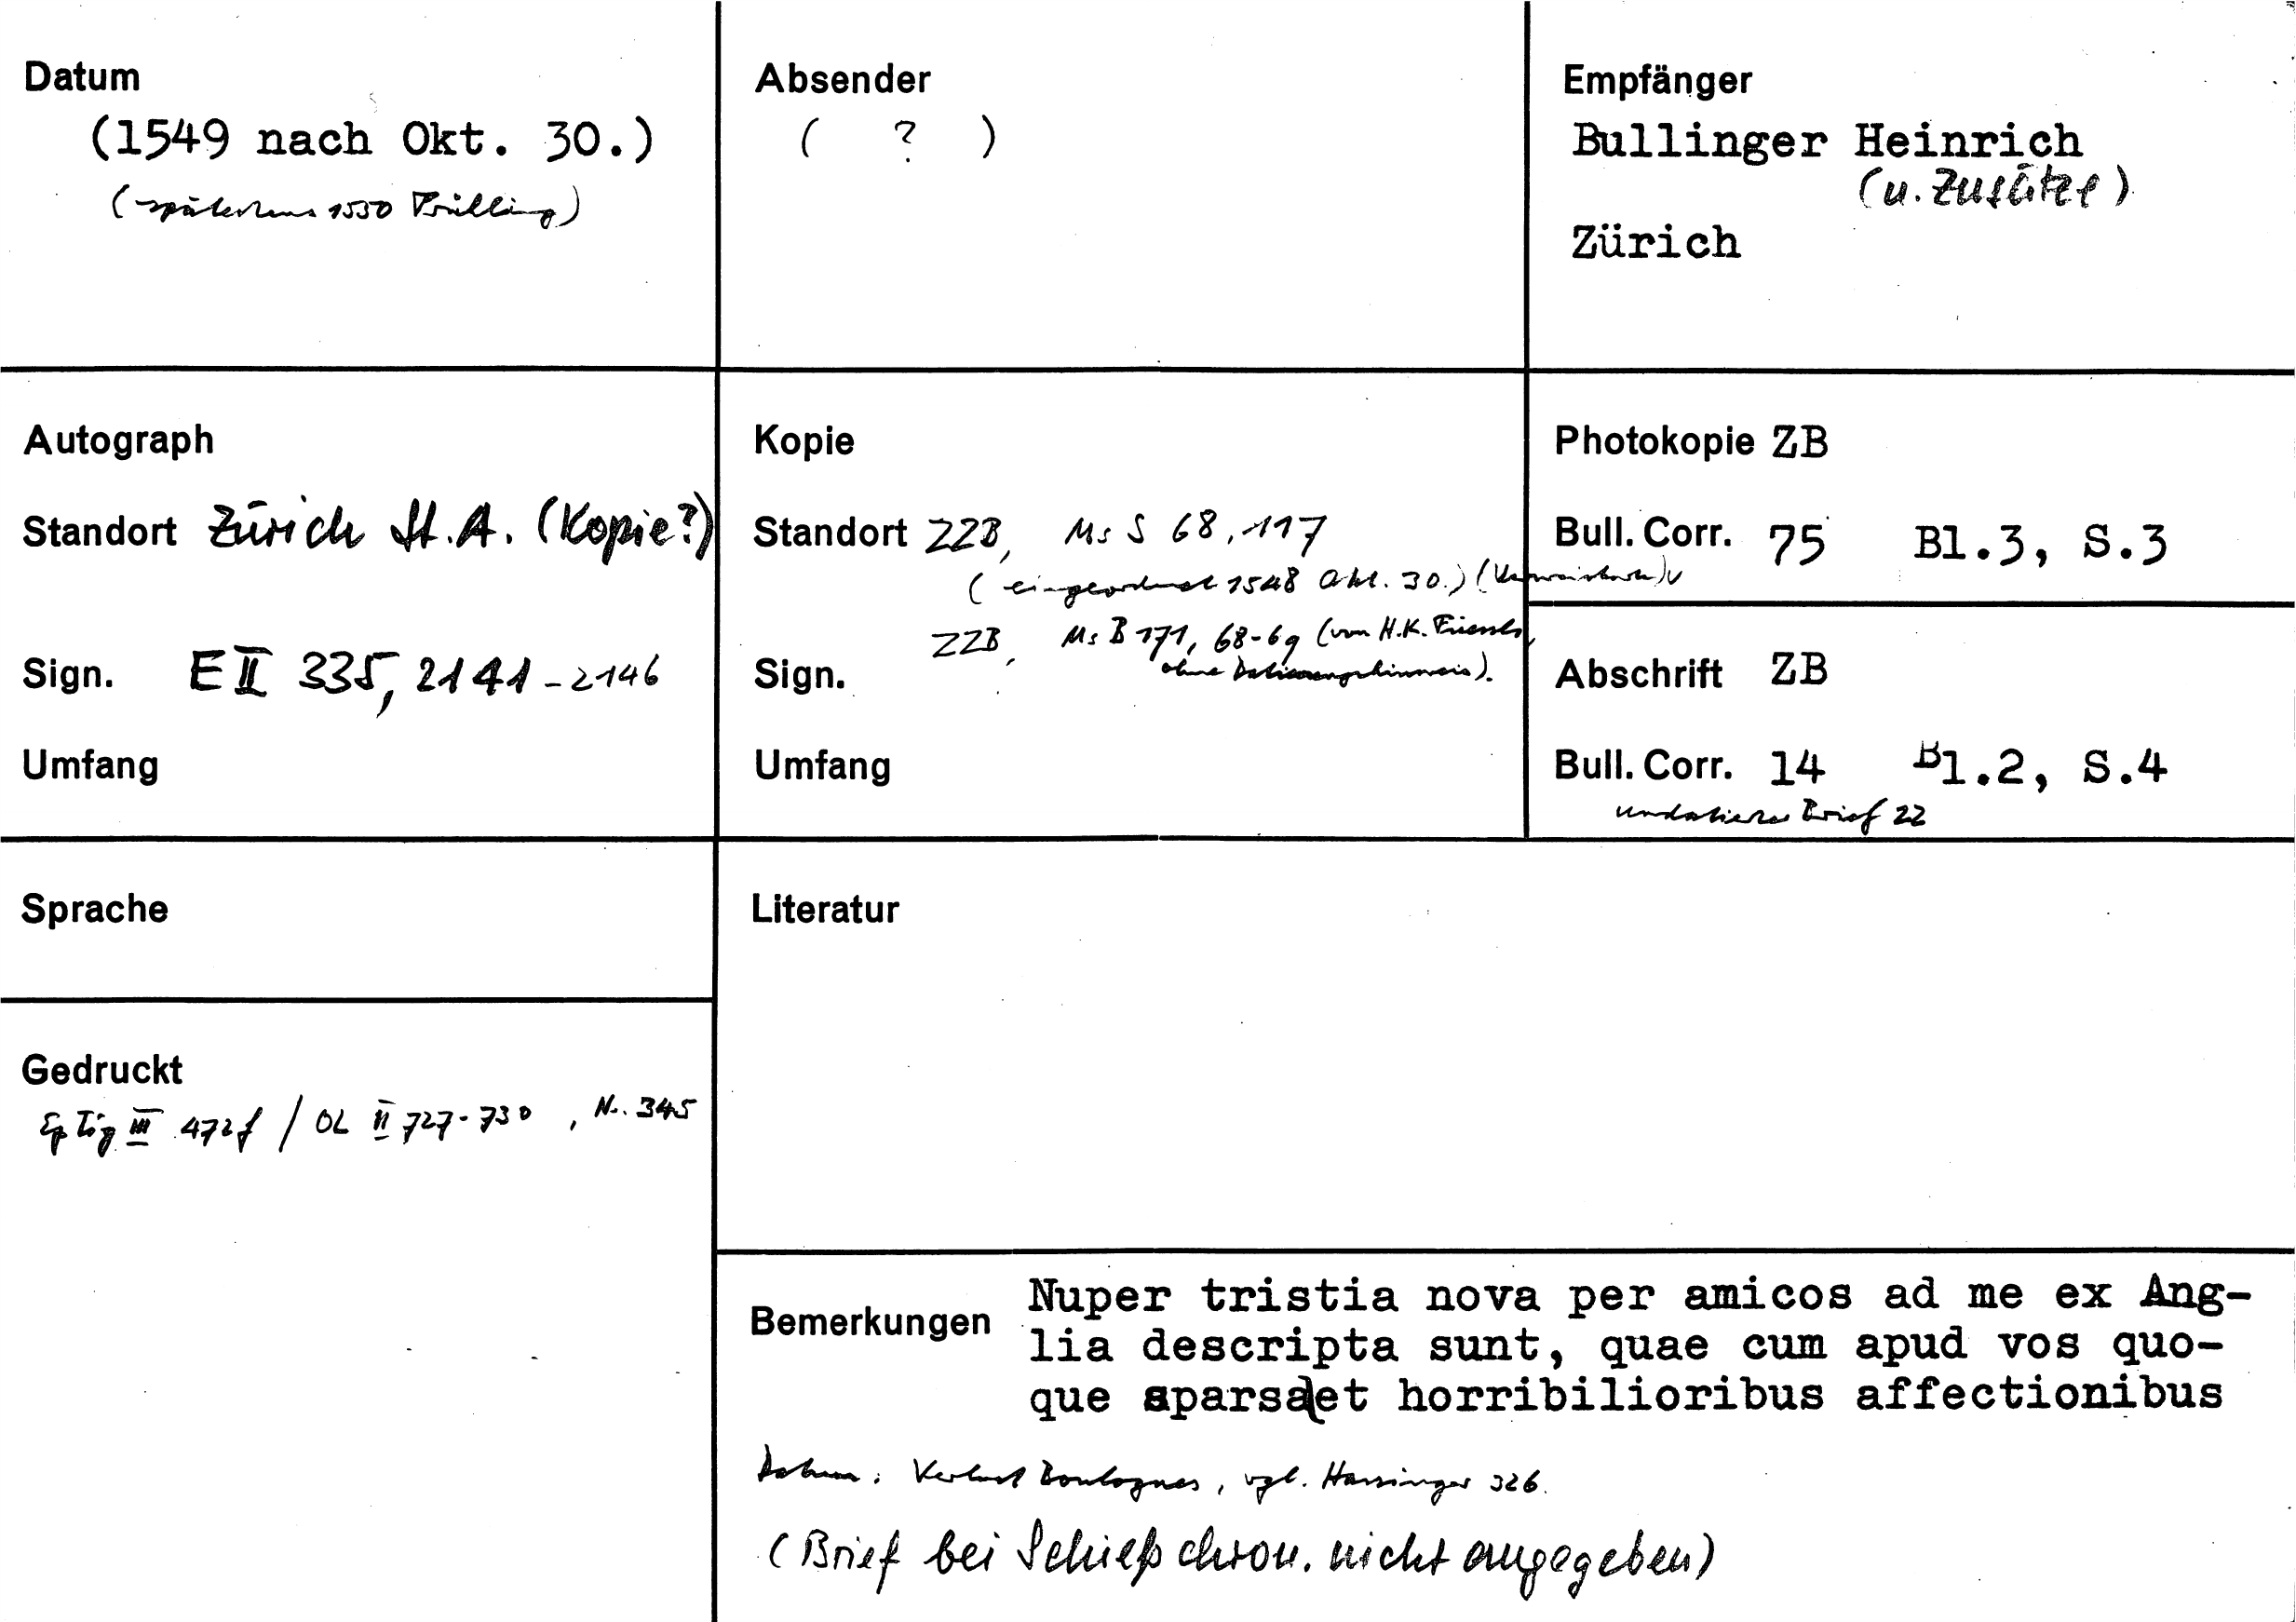 Datum
(1549 nach Okt. 30.)
(spätestens 1550 Frühling)
Absender
( ? )
Empfänger
Bullinger Heinrich
(u. Zusätze)
Zürich
Autograph
Standort Zürich St.A. (Kopie?)
Sign. E II 335, 2141-2146
Umfang
Kopie
Standort ZZB, Ms S 68, 117
(eingeordnet 1548 Okt. 30.)
ZZB, Ms B 171, 68-69 (von H.K.
ohne Datierungshinweis).
Sign.
Umfang
Photokopie ZB
Bull. Corr. 75 Bl.3, S.3
Abschrift ZB
Bull. Corr. 14 Bl.2, S.4
undatierter Brief 22
Sprache
Literatur
Gedruckt
Ep Tig III 472f / OL II 727-730, N. 345
Bemerkungen
Nuper tristia nova per amicos ad me ex Ang-
lia descripta sunt, quae cum apud vos quo-
que sparsa et horribilioribus affectionibus
Datum: Verlust Boulognes, vgl. Hassinger 326.
(Brief bei Schieß chron. nicht angegeben)